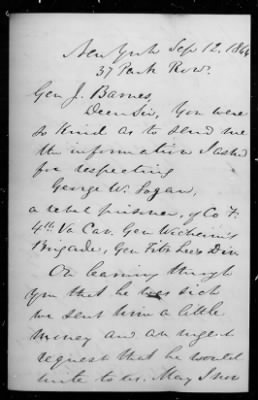 New York Sep 12, 1864
37 Park Row.
Gen J. Barnes,
Dear Sir, You were
so kind as to send me
the information I asked
for respecting
George W. Logan,
a rebel prisoner, of Co F.
4th Va Cav. Gen Wickham's
Brigade, Gen Fitz Lee's Div
On learning through
you that he was sick
we sent him a little
money and an urgent
request that he would
write to us. May I now